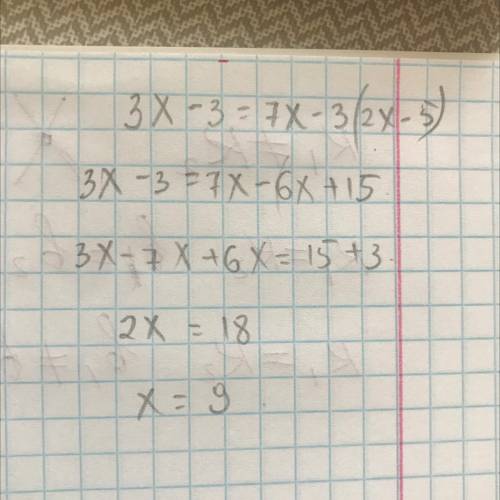 3x - 3 = 7x - 3(2x - 5)
3x - 3 = 7x - 6x + 15
3x - 7x + 6x = 15 + 3
2x = 18
x = 9